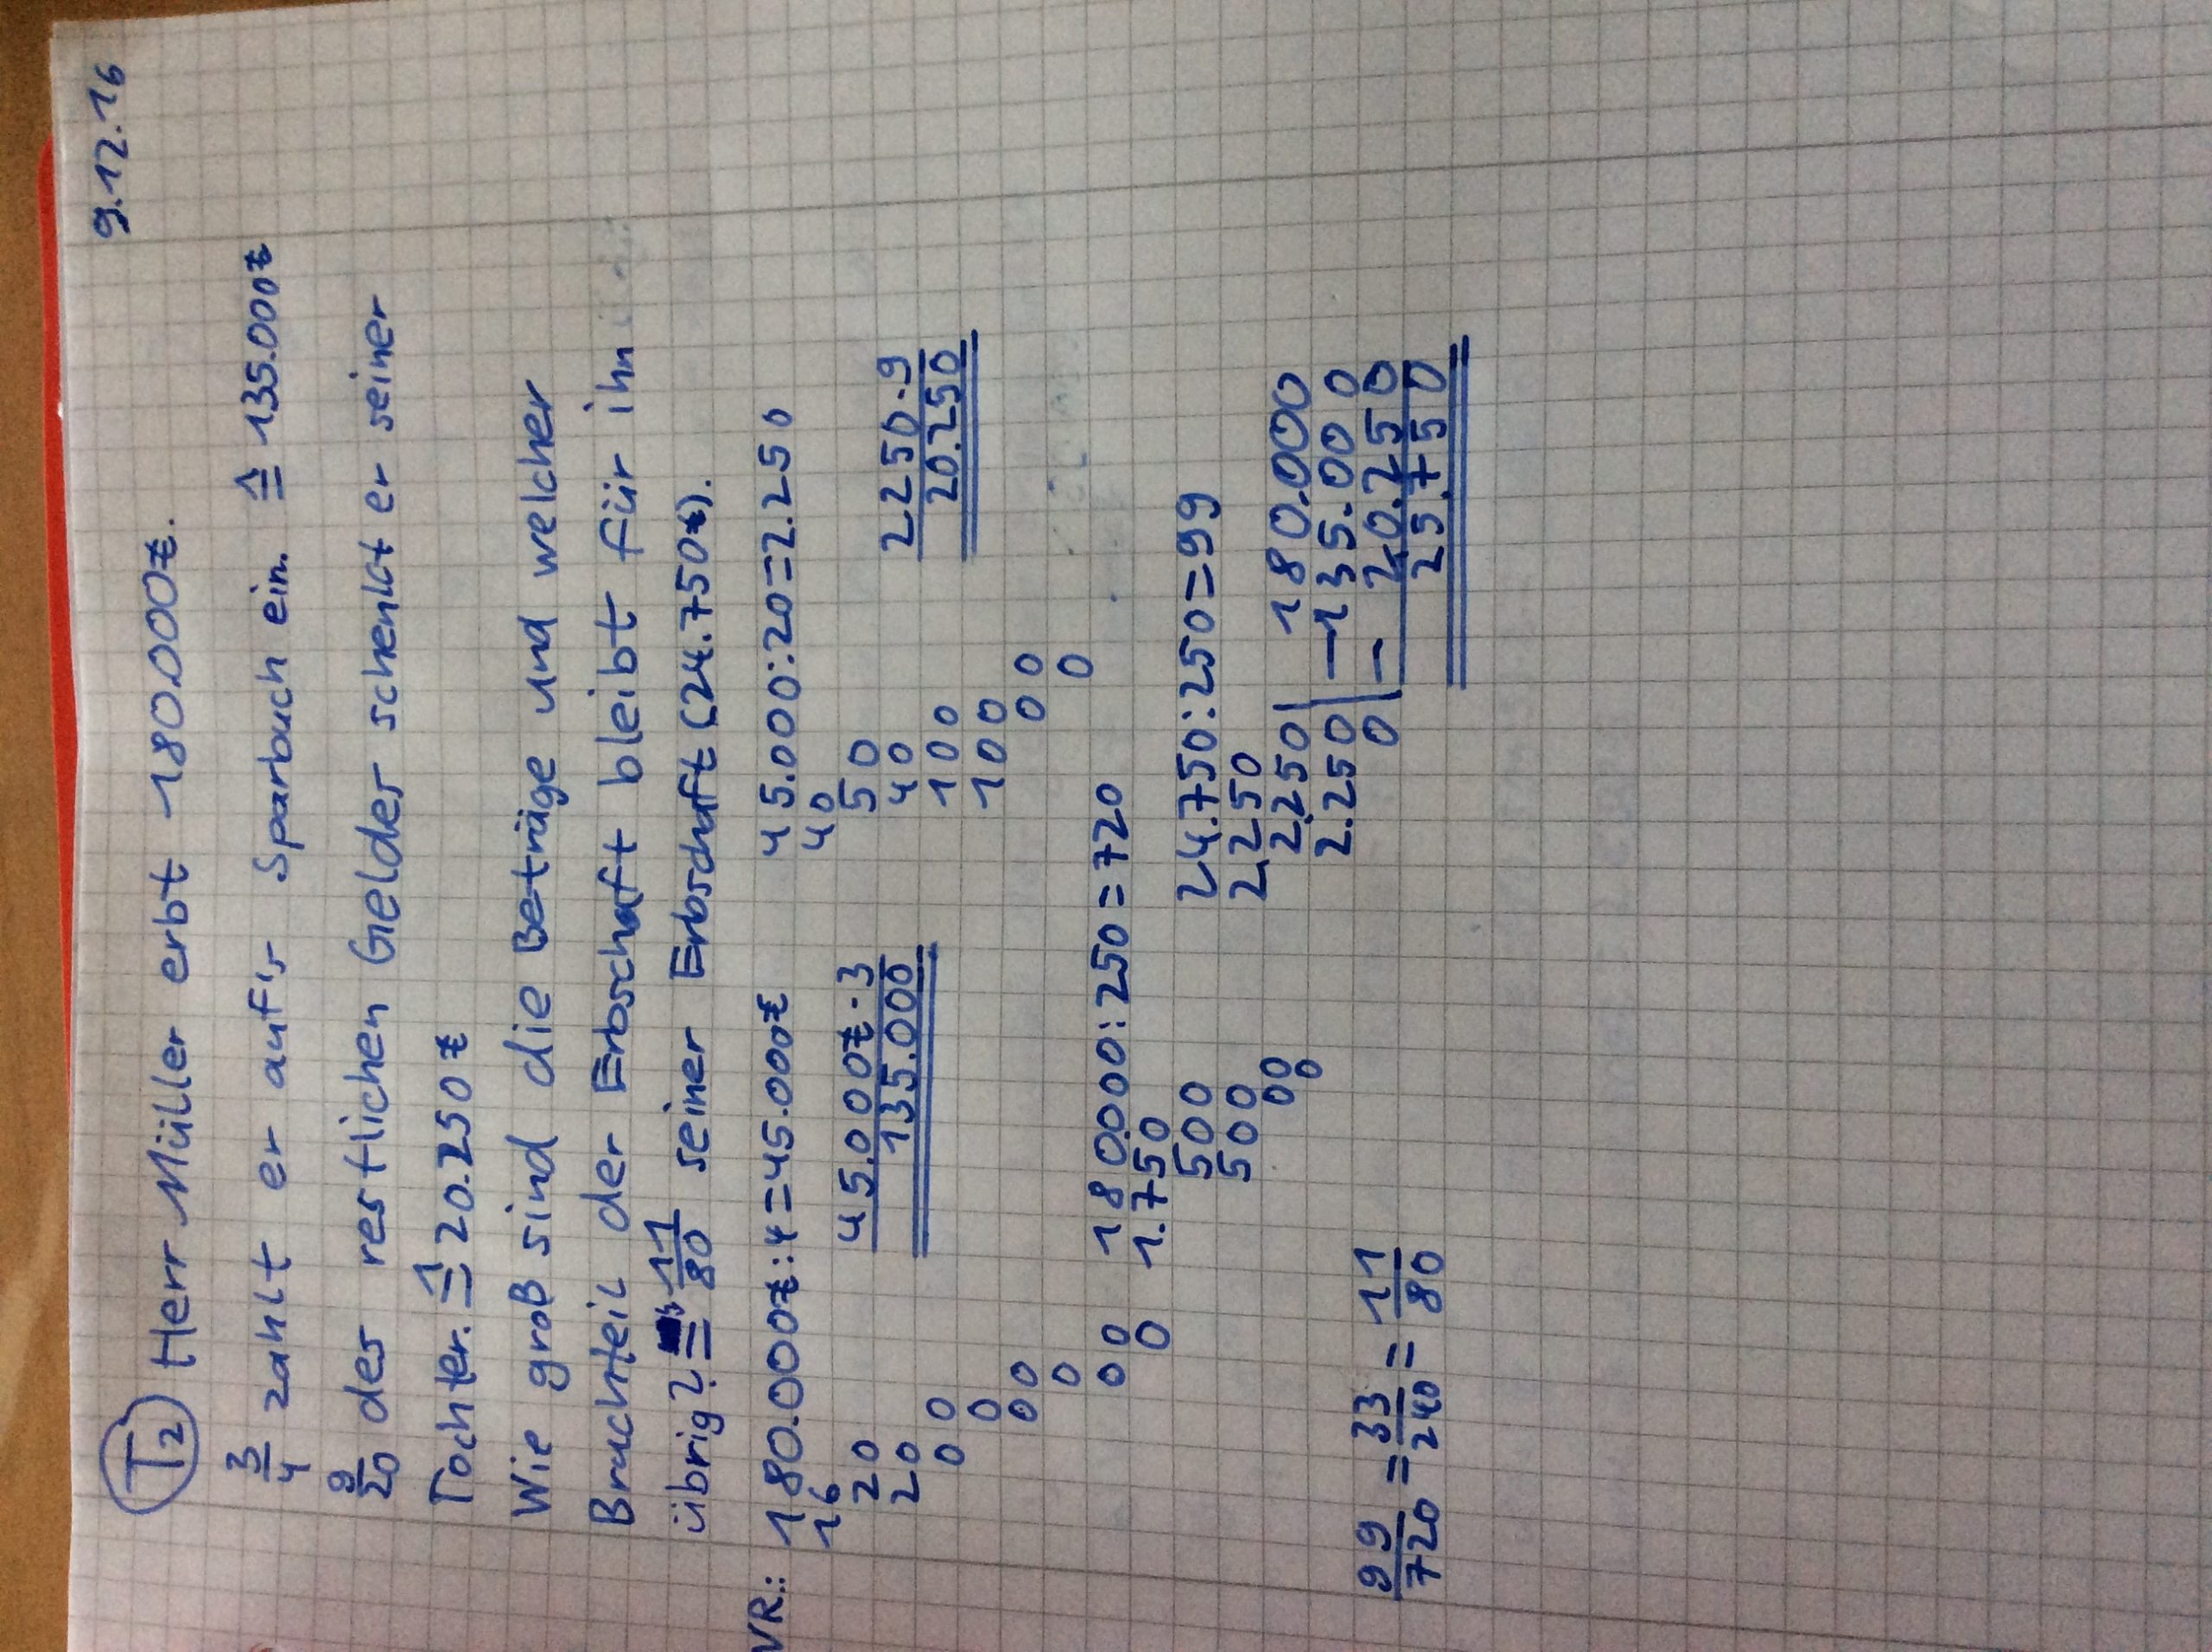 9.12.16
T2 Herr Müller erbt 180.000 zł.
3/4 zahlt er auf's Sparbuch ein. ≙ 135.000 zł
9/20 des restlichen Gelder schenkt er seiner
Tochter. ≙ 20.250 zł
Wie groß sind die Beträge und welcher
Bruchteil der Erbschaft bleibt für ihn
übrig? = 11/80 seiner Erbschaft (24.750 zł).
VR.: 180.000 zł : 4 = 45.000 zł
16
20
20
0 0
0
0 0
0
0 0
0
45.000 zł · 3
135.000
45.000 : 20 = 2.250
40
50
40
100
100
0 0
0
2250 · 9
20.250
180.000 : 250 = 720
1.750
500
500
00
0
24.750 : 250 = 99
2.250
2.250
2.250
0
180.000
- 135.000
- 20.250
25.750
99/720 = 33/240 = 11/80